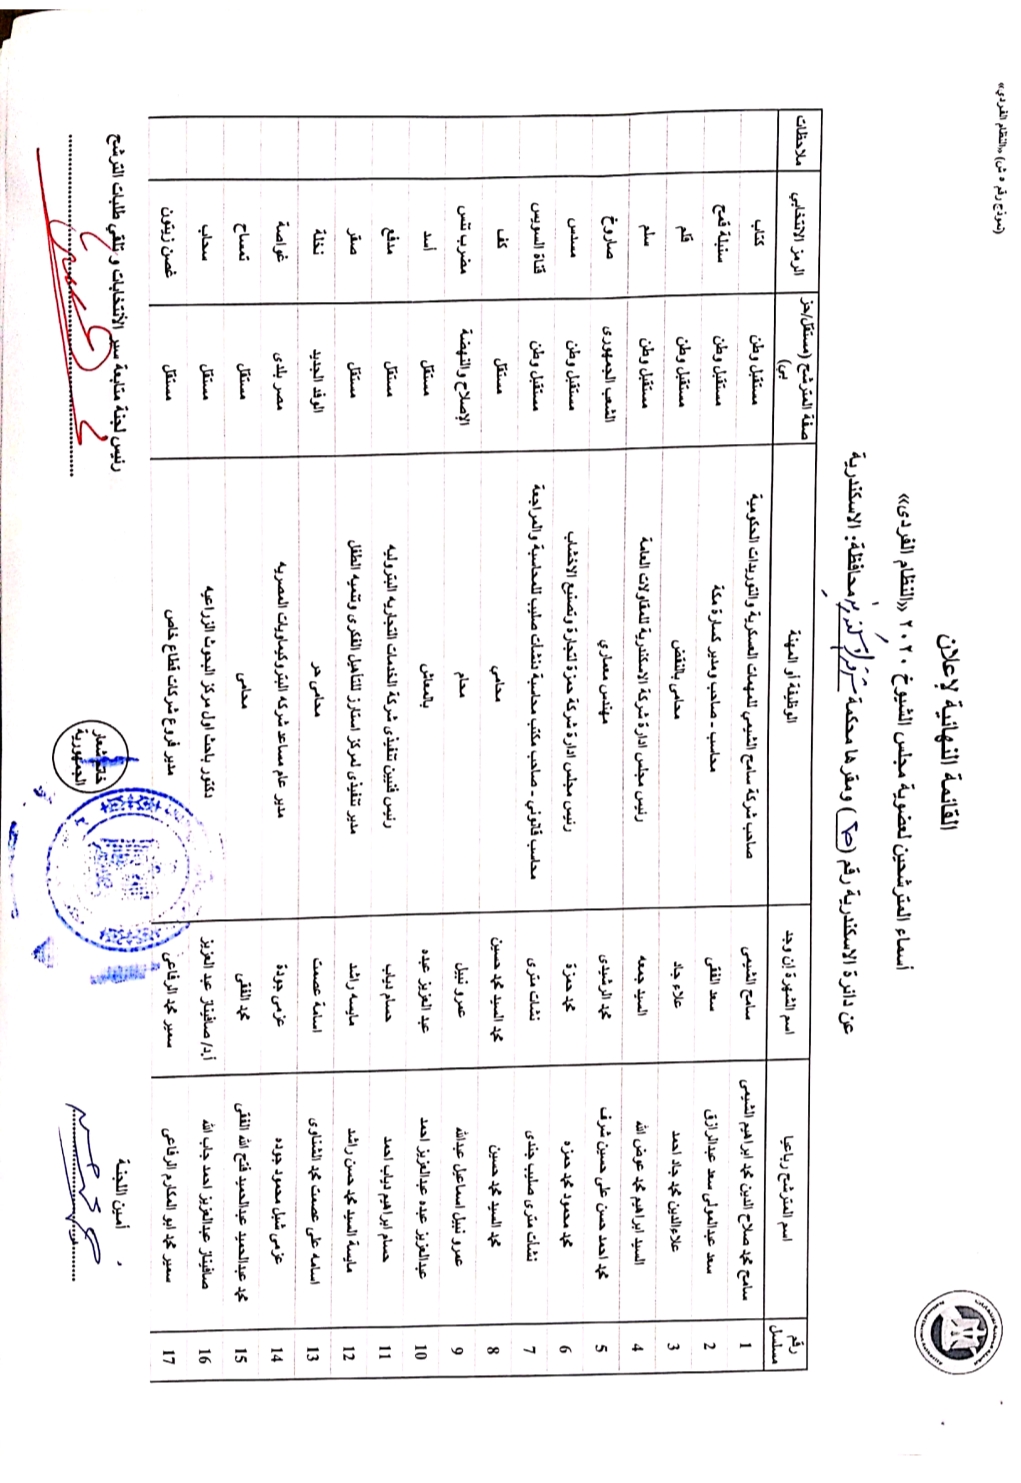 (نموذج رقم ٥ ش) «النظام الفردي»
القائمة النهائية لإعلان
أسماء المترشحين لعضوية مجلس الشيوخ ٢٠٢٠ «النظام الفردى»
عن دائرة الاسكندرية رقم ( ) ومقرها محكمة محافظة: الاسكندرية
رقم مسلسل | اسم المترشح رباعيا | اسم الشهرة إن وجد | الوظيفة أو المهنة | صفة المترشح (مستقل/حزبي) | الرمز الانتخابي | ملاحظات
1 | سامح محمد صلاح الدين محمد ابراهيم الشيمى | سامح الشيمى | صاحب شركة سامح الشيمي للمهمات العسكرية والتوريدات الحكومية | مستقبل وطن | كتاب
2 | سعد عبدالمولى سعد عبدالرازق | سعد الفقى | محاسب - صاحب ومدير كسارة مكة | مستقبل وطن | سنبلة قمح
3 | علاءالدين محمد جاد احمد | علاء جاد | محامى بالنقض | مستقبل وطن | قلم
4 | السيد ابراهيم محمد عوض الله | السيد جمعه | رئيس مجلس ادارة شركة الاسكندرية للمقاولات العامة | مستقبل وطن | سلم
5 | محمد احمد حسن على حسين شرف | محمد الرشيدى | مهندس معماري | الشعب الجمهورى | صاروخ
6 | محمد محمود محمد حمزه | محمد حمزة | رئيس مجلس ادارة شركة حمزة لتجارة وتصنيع الاخشاب | مستقبل وطن | مسدس
7 | نشات مترى صليب جندى | نشات مترى | محاسب قانوني - صاحب مكتب محاسبة نشات صليب للمحاسبة والمراجعة | مستقبل وطن | قناة السويس
8 | محمد السيد محمد حسين | محمد السيد محمد حسين | محامي | مستقل | كف
9 | عمرو نبيل اسماعيل عبدالله | عمرو نبيل | محام | الإصلاح والنهضة | مضرب تنس
10 | عبدالعزيز عبده عبدالعزيز احمد | عبد العزيز عبده | بالمعاش | مستقل | أسد
11 | حسام ابراهيم دياب احمد | حسام دياب | رئيس فنيين تنفيذى شركة الخدمات التجاريه البتروليه | مستقل | مدفع
12 | مايسة السيد محمد حسن راشد | مايسه راشد | مدير تنفيذى لمركز استارز للتأهيل الفكرى وتنميه الطفل | مستقل | صقر
13 | اسامه على عصمت محمد الشناوى | اسامة عصمت | محامى حر | الوفد الجديد | نخلة
14 | عزمى شبل محمود جوده | عزمى جودة | مدير عام مساعد شركه البتروكيماويات المصريه | مصر بلدى | غواصة
15 | محمد عبدالحميد عبدالحميد فتح الله الفقى | محمد الفقى | محامى | مستقل | تمساح
16 | صافيناز عبدالعزيز احمد جاب الله | أ.د/ صافيناز عبد العزيز | دكتور باحث اول مركز البحوث الزراعيه | مستقل | سحاب
17 | سمير محمد ابو المكارم الرفاعى | سمير محمد الرفاعى | مدير فروع شركات قطاع خاص | مستقل | غصن زيتون
أمين اللجنة
خاتم شعار
الجمهورية
رئيس لجنة متابعة سير الأنتخابات و تلقي طلبات الترشح